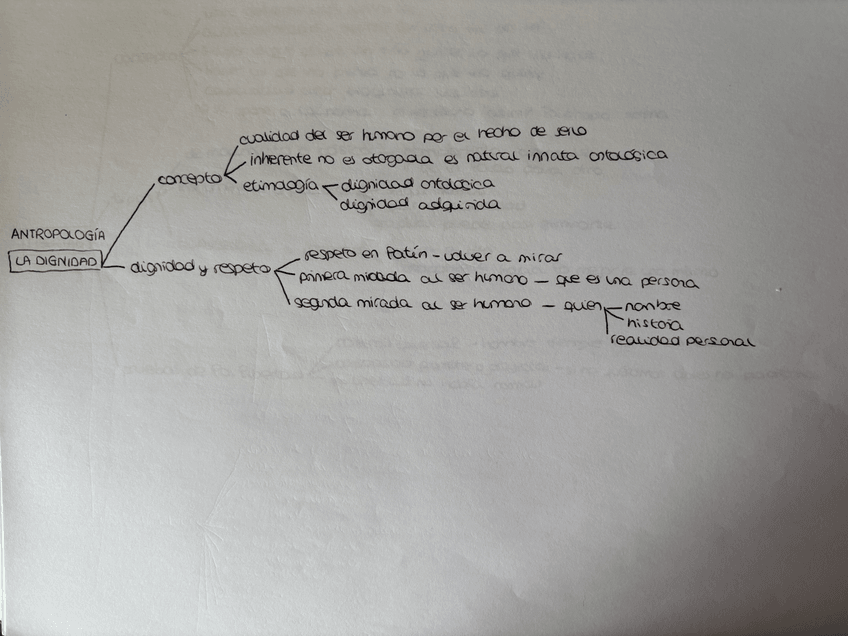 cualidad del ser humano por el hecho de serlo
inherente no es otogada es natural innata ontológica
concepto
etimología
dignidad ontológica
dignidad adquirida
ANTROPOLOGÍA
LA DIGNIDAD
dignidad y respeto
respeto en latín - volver a mirar
primera mirada al ser humano - que es una persona
segunda mirada al ser humano - quien
nombre
historia
realidad personal